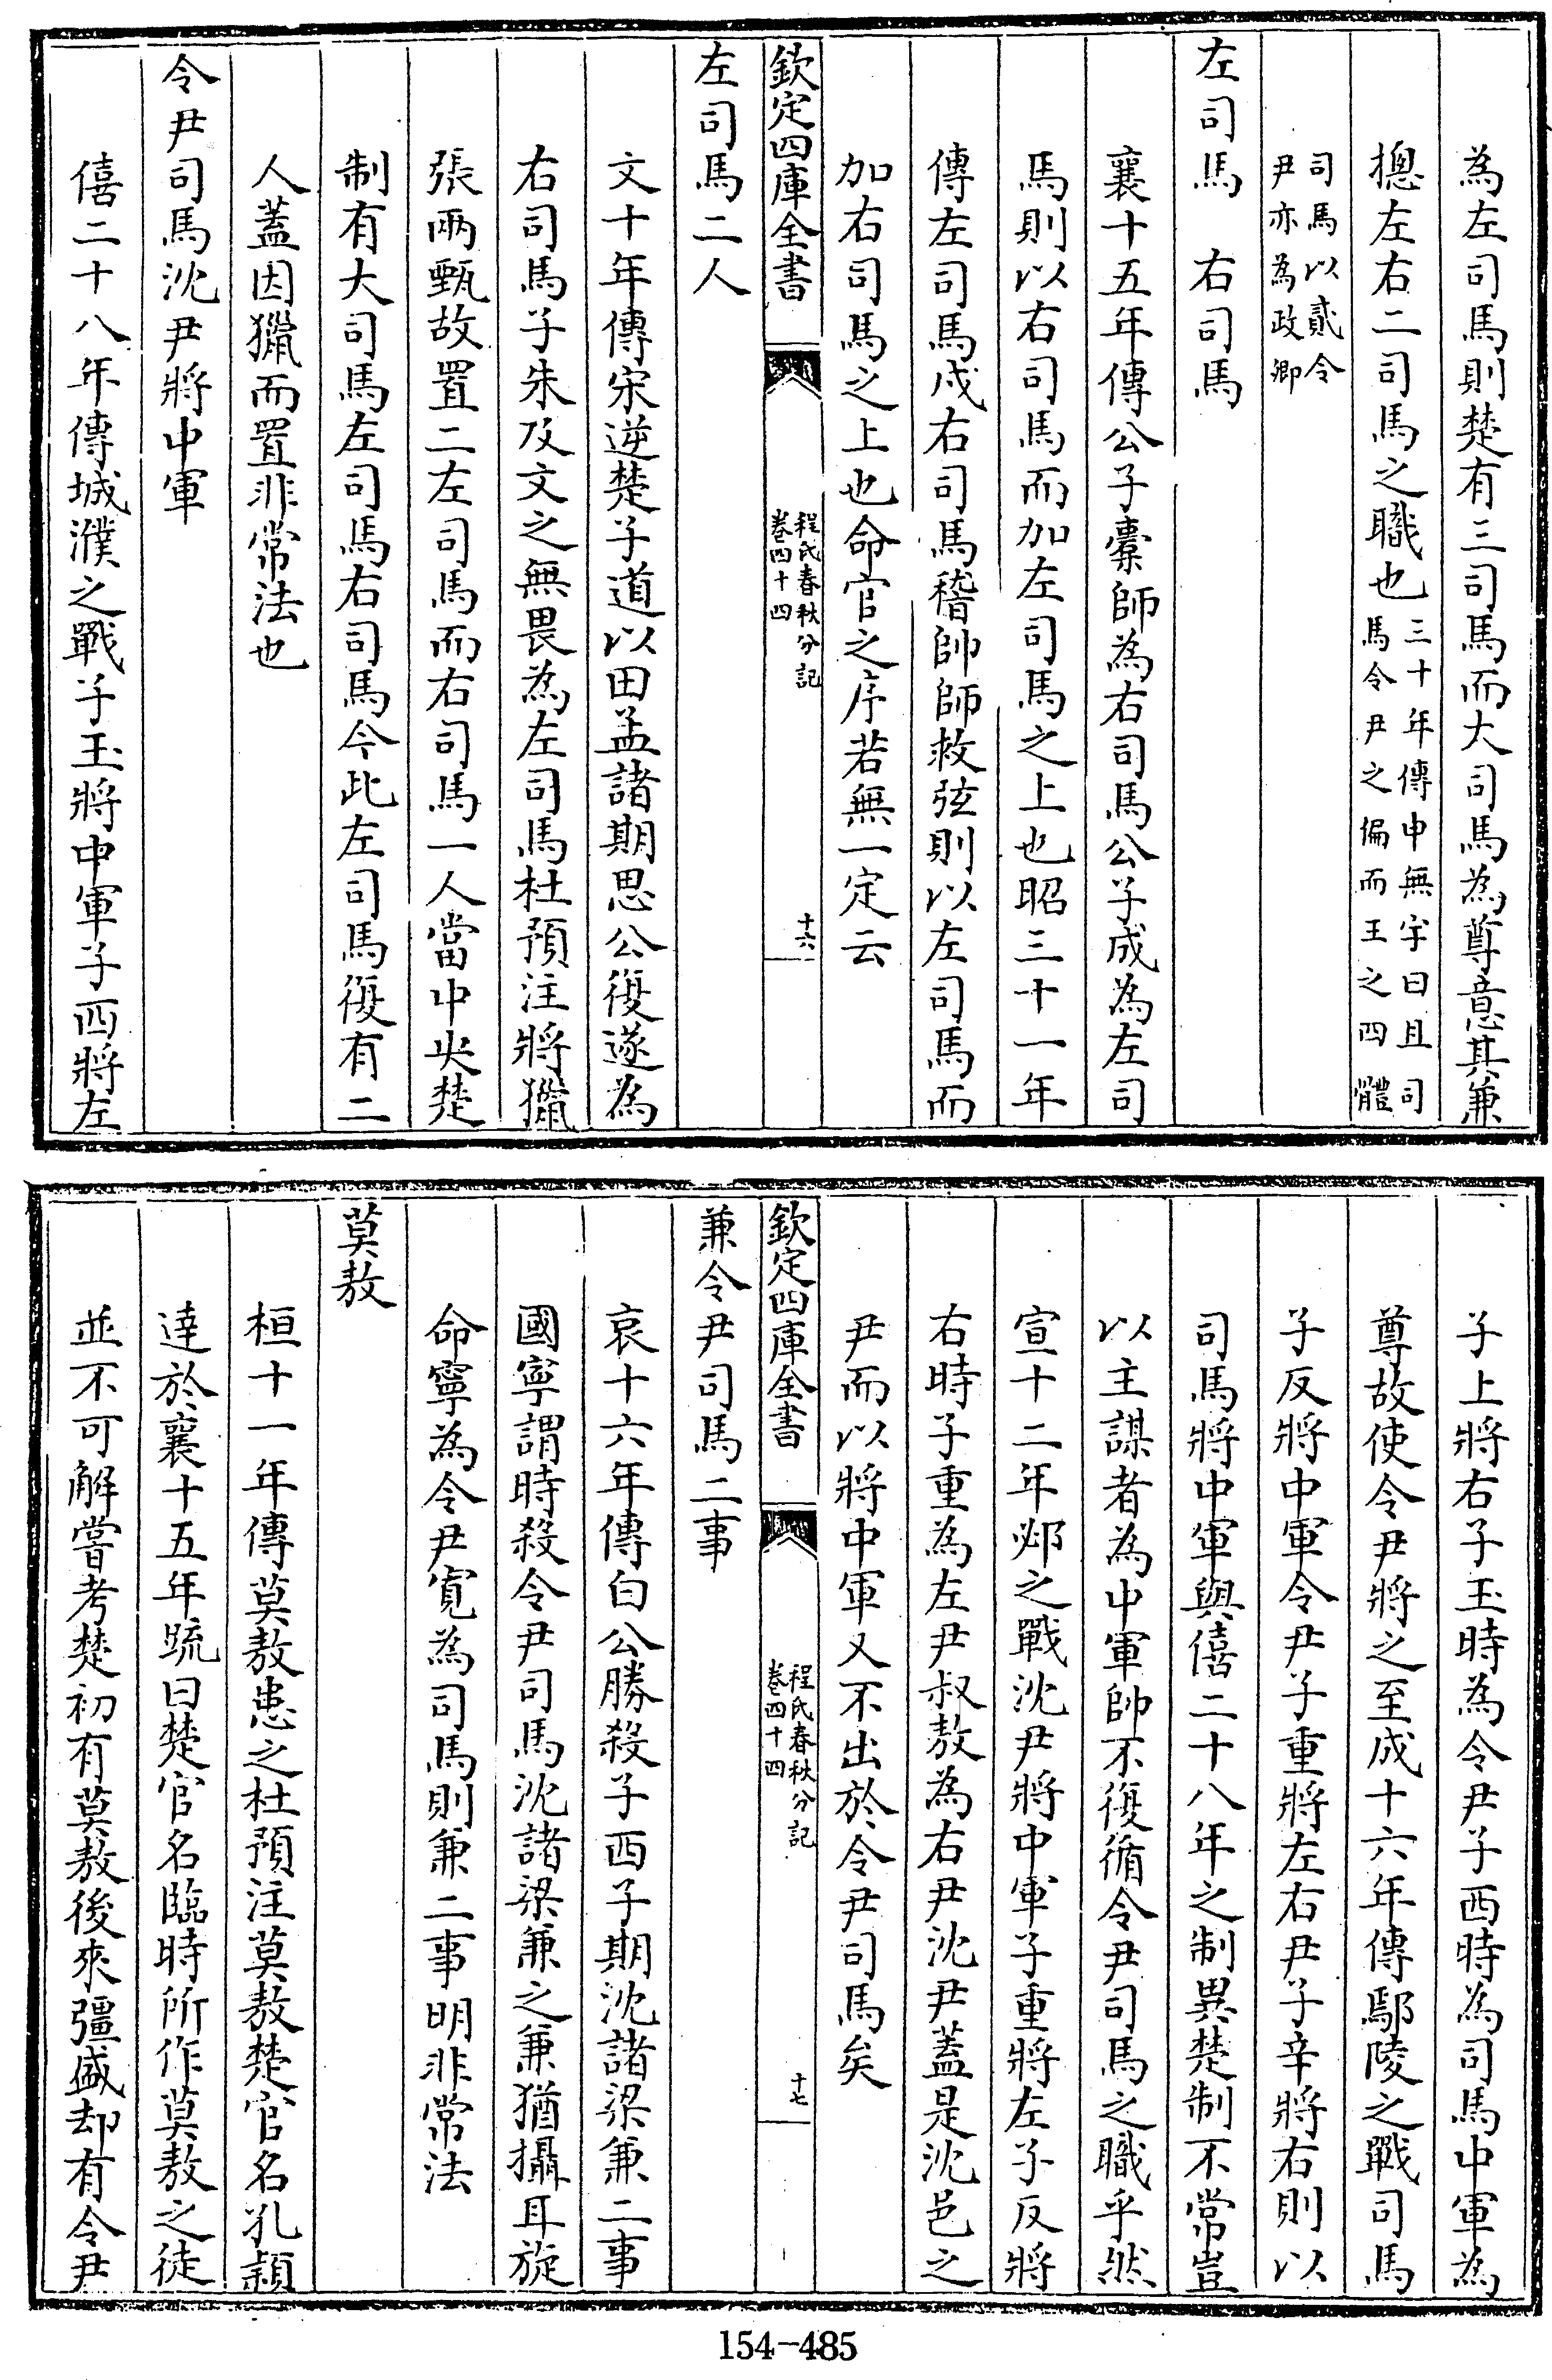 為左司馬則楚有三司馬而大司馬為尊意其兼
摠左右二司馬之職也三十年傳申無宇曰且司馬令尹之偏而王之四體
司馬以貳令尹亦為政卿
左司馬　右司馬
襄十五年傳公子橐師為右司馬公子成為左司
馬則以右司馬而加左司馬之上也昭三十一年
傳左司馬戍右司馬稽帥師救弦則以左司馬而
加右司馬之上也命官之序若無一定云
欽定四庫全書
程氏春秋分記
卷四十四
十六
左司馬二人
文十年傳宋逆楚子道以田孟諸期思公復遂為
右司馬子朱及文之無畏為左司馬杜預注將獵
張兩甄故置二左司馬而右司馬一人當中央楚
制有大司馬左司馬右司馬今此左司馬復有二
人蓋因獵而置非常法也
令尹司馬沈尹將中軍
僖二十八年傳城濮之戰子玉將中軍子西將左
子上將右子玉時為令尹子西時為司馬中軍為
尊故使令尹將之至成十六年傳鄢陵之戰司馬
子反將中軍令尹子重將左右尹子辛將右則以
司馬將中軍與僖二十八年之制異楚制不常豈
以主謀者為中軍帥不復循令尹司馬之職乎然
宣十二年邲之戰沈尹將中軍子重將左子反將
右時子重為左尹叔敖為右尹沈尹蓋是沈邑之
尹而以將中軍又不出於令尹司馬矣
欽定四庫全書
程氏春秋分記
卷四十四
十七
兼令尹司馬二事
哀十六年傳白公勝殺子西子期沈諸梁兼二事
國寧謂時殺令尹司馬沈諸梁兼之兼猶攝耳旋
命寧為令尹寬為司馬則兼二事明非常法
莫敖
桓十一年傳莫敖患之杜預注莫敖楚官名孔穎
達於襄十五年疏曰楚官名臨時所作莫敖之徒
並不可解嘗考楚初有莫敖後來彊盛却有令尹
154-485